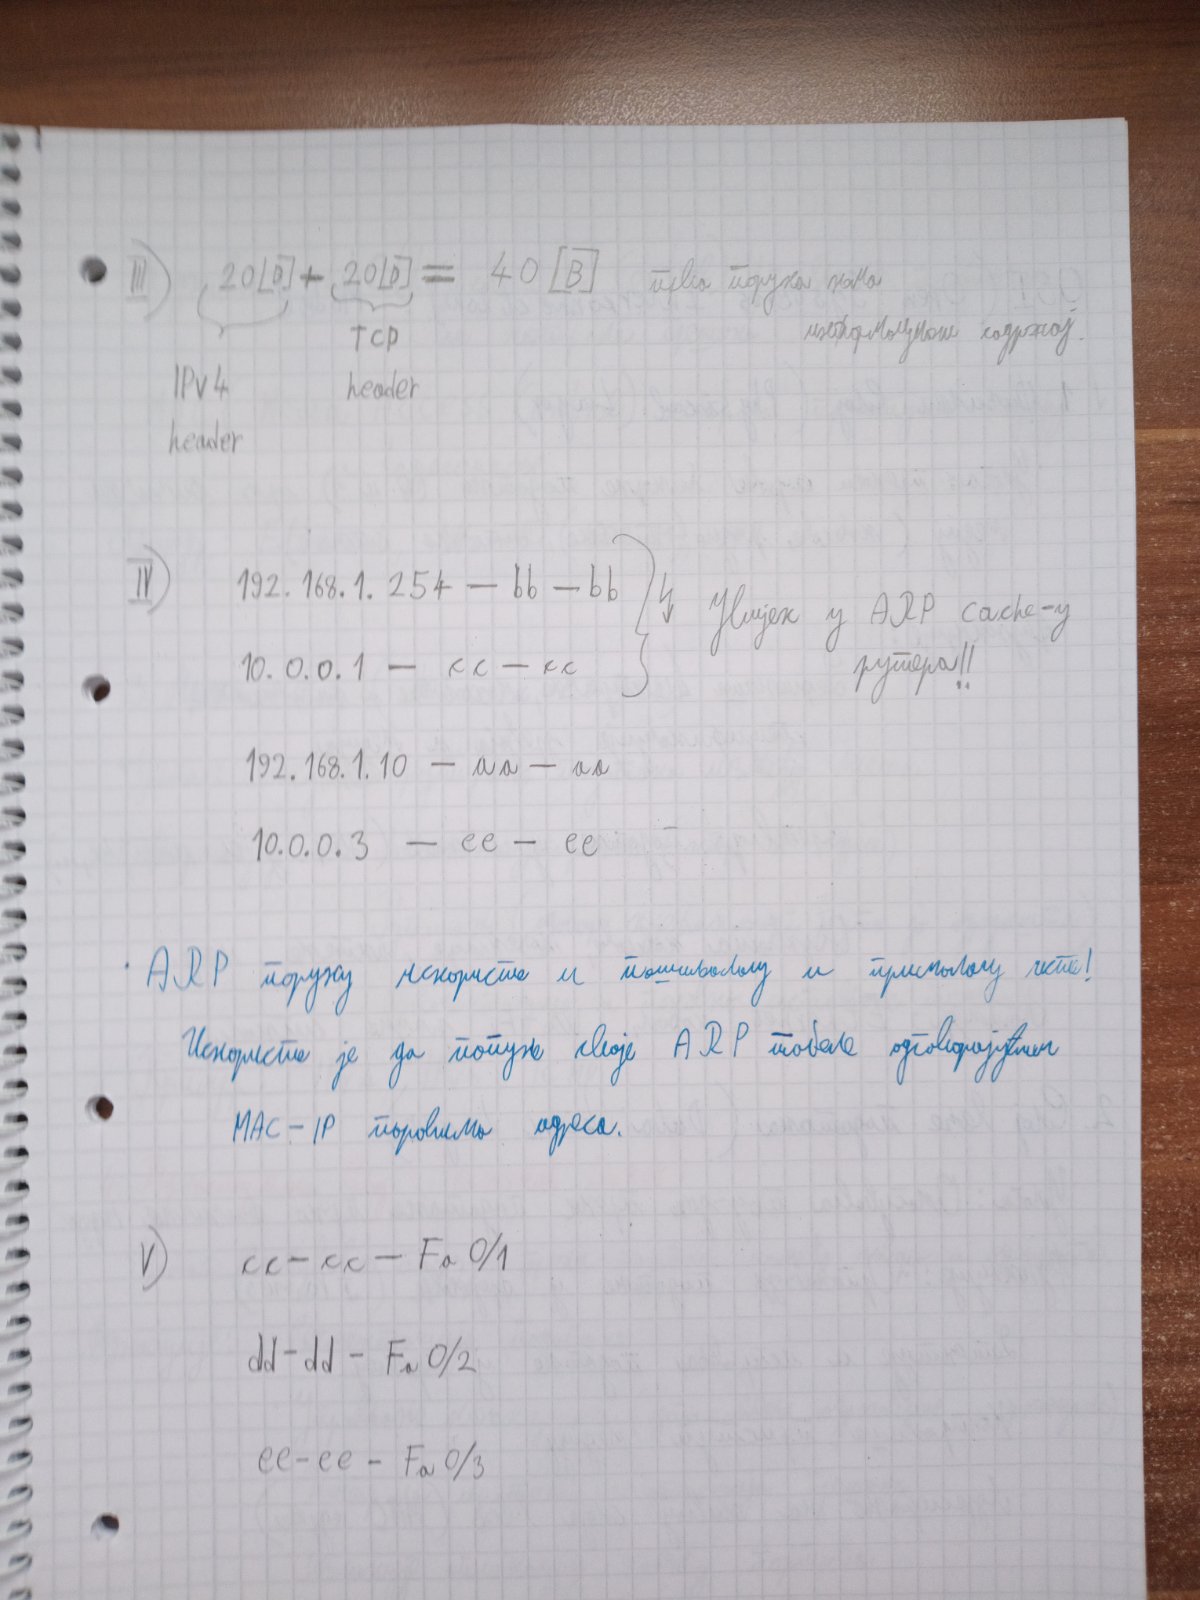 III) 20[B] + 20[B] = 40 [B] прва порука нема
информациони садржај.
TCP
IPv4 header
header
IV) 192.168.1.254 – bb – bb
Увијек у ARP cache-у
рутера!!
10.0.0.1 – cc – cc
192.168.1.10 – aa – aa
10.0.0.3 – ee – ee
· ARP поруку искористе и пошиљалац и прималац исте!
Искористе је да попуне своје ARP табеле одговарајућим
MAC – IP паровима адреса.
V) cc – cc – Fa 0/1
dd – dd – Fa 0/2
ee – ee – Fa 0/3